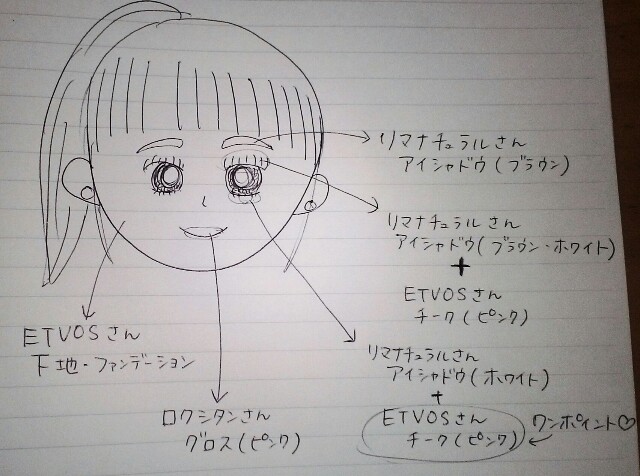 リマナチュラルさん
アイシャドウ(ブラウン)
リマナチュラルさん
アイシャドウ(ブラウン・ホワイト)
+
ETVOSさん
チーク(ピンク)
リマナチュラルさん
アイシャドウ(ホワイト)
+
ETVOSさん
チーク(ピンク)
ワンポイント♡
ETVOSさん
下地・ファンデーション
ロクシタンさん
グロス(ピンク)